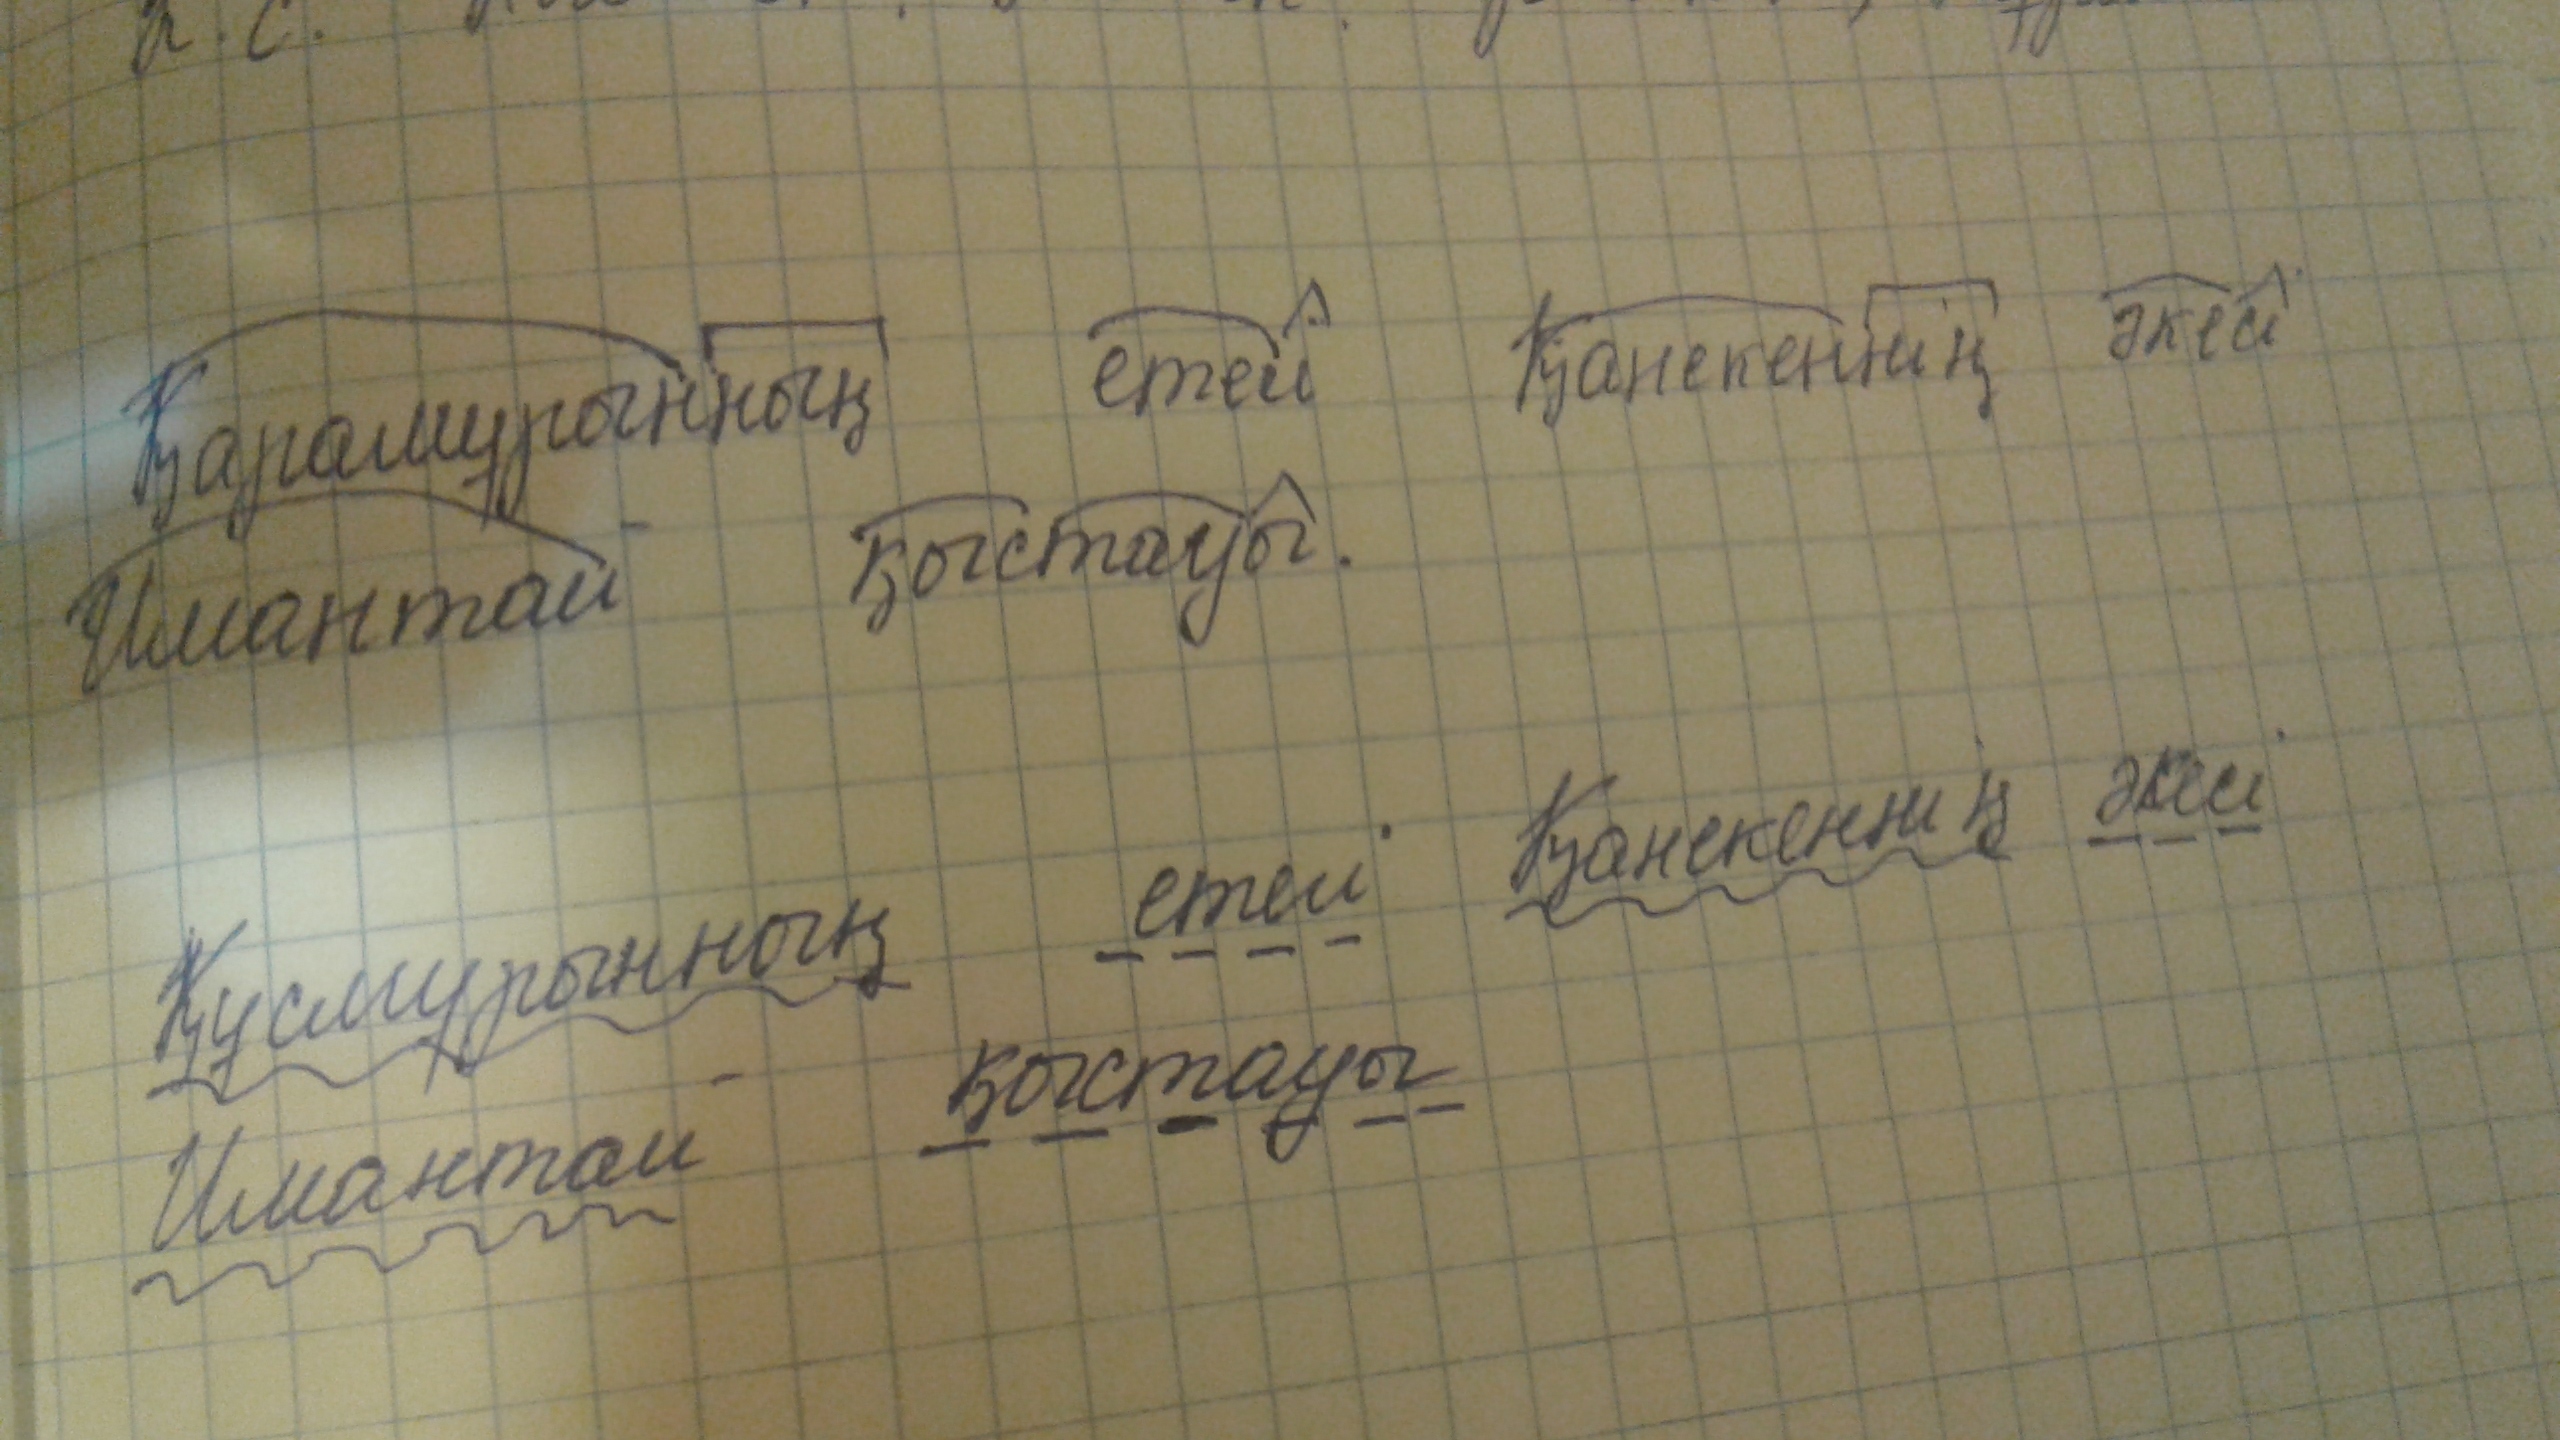 Қарамұрынның етегі Қанекеннің әкесі
Имантау қыстауы.
Құсмұрынның етегі Қанекеннің әкесі
Имантау қыстауы